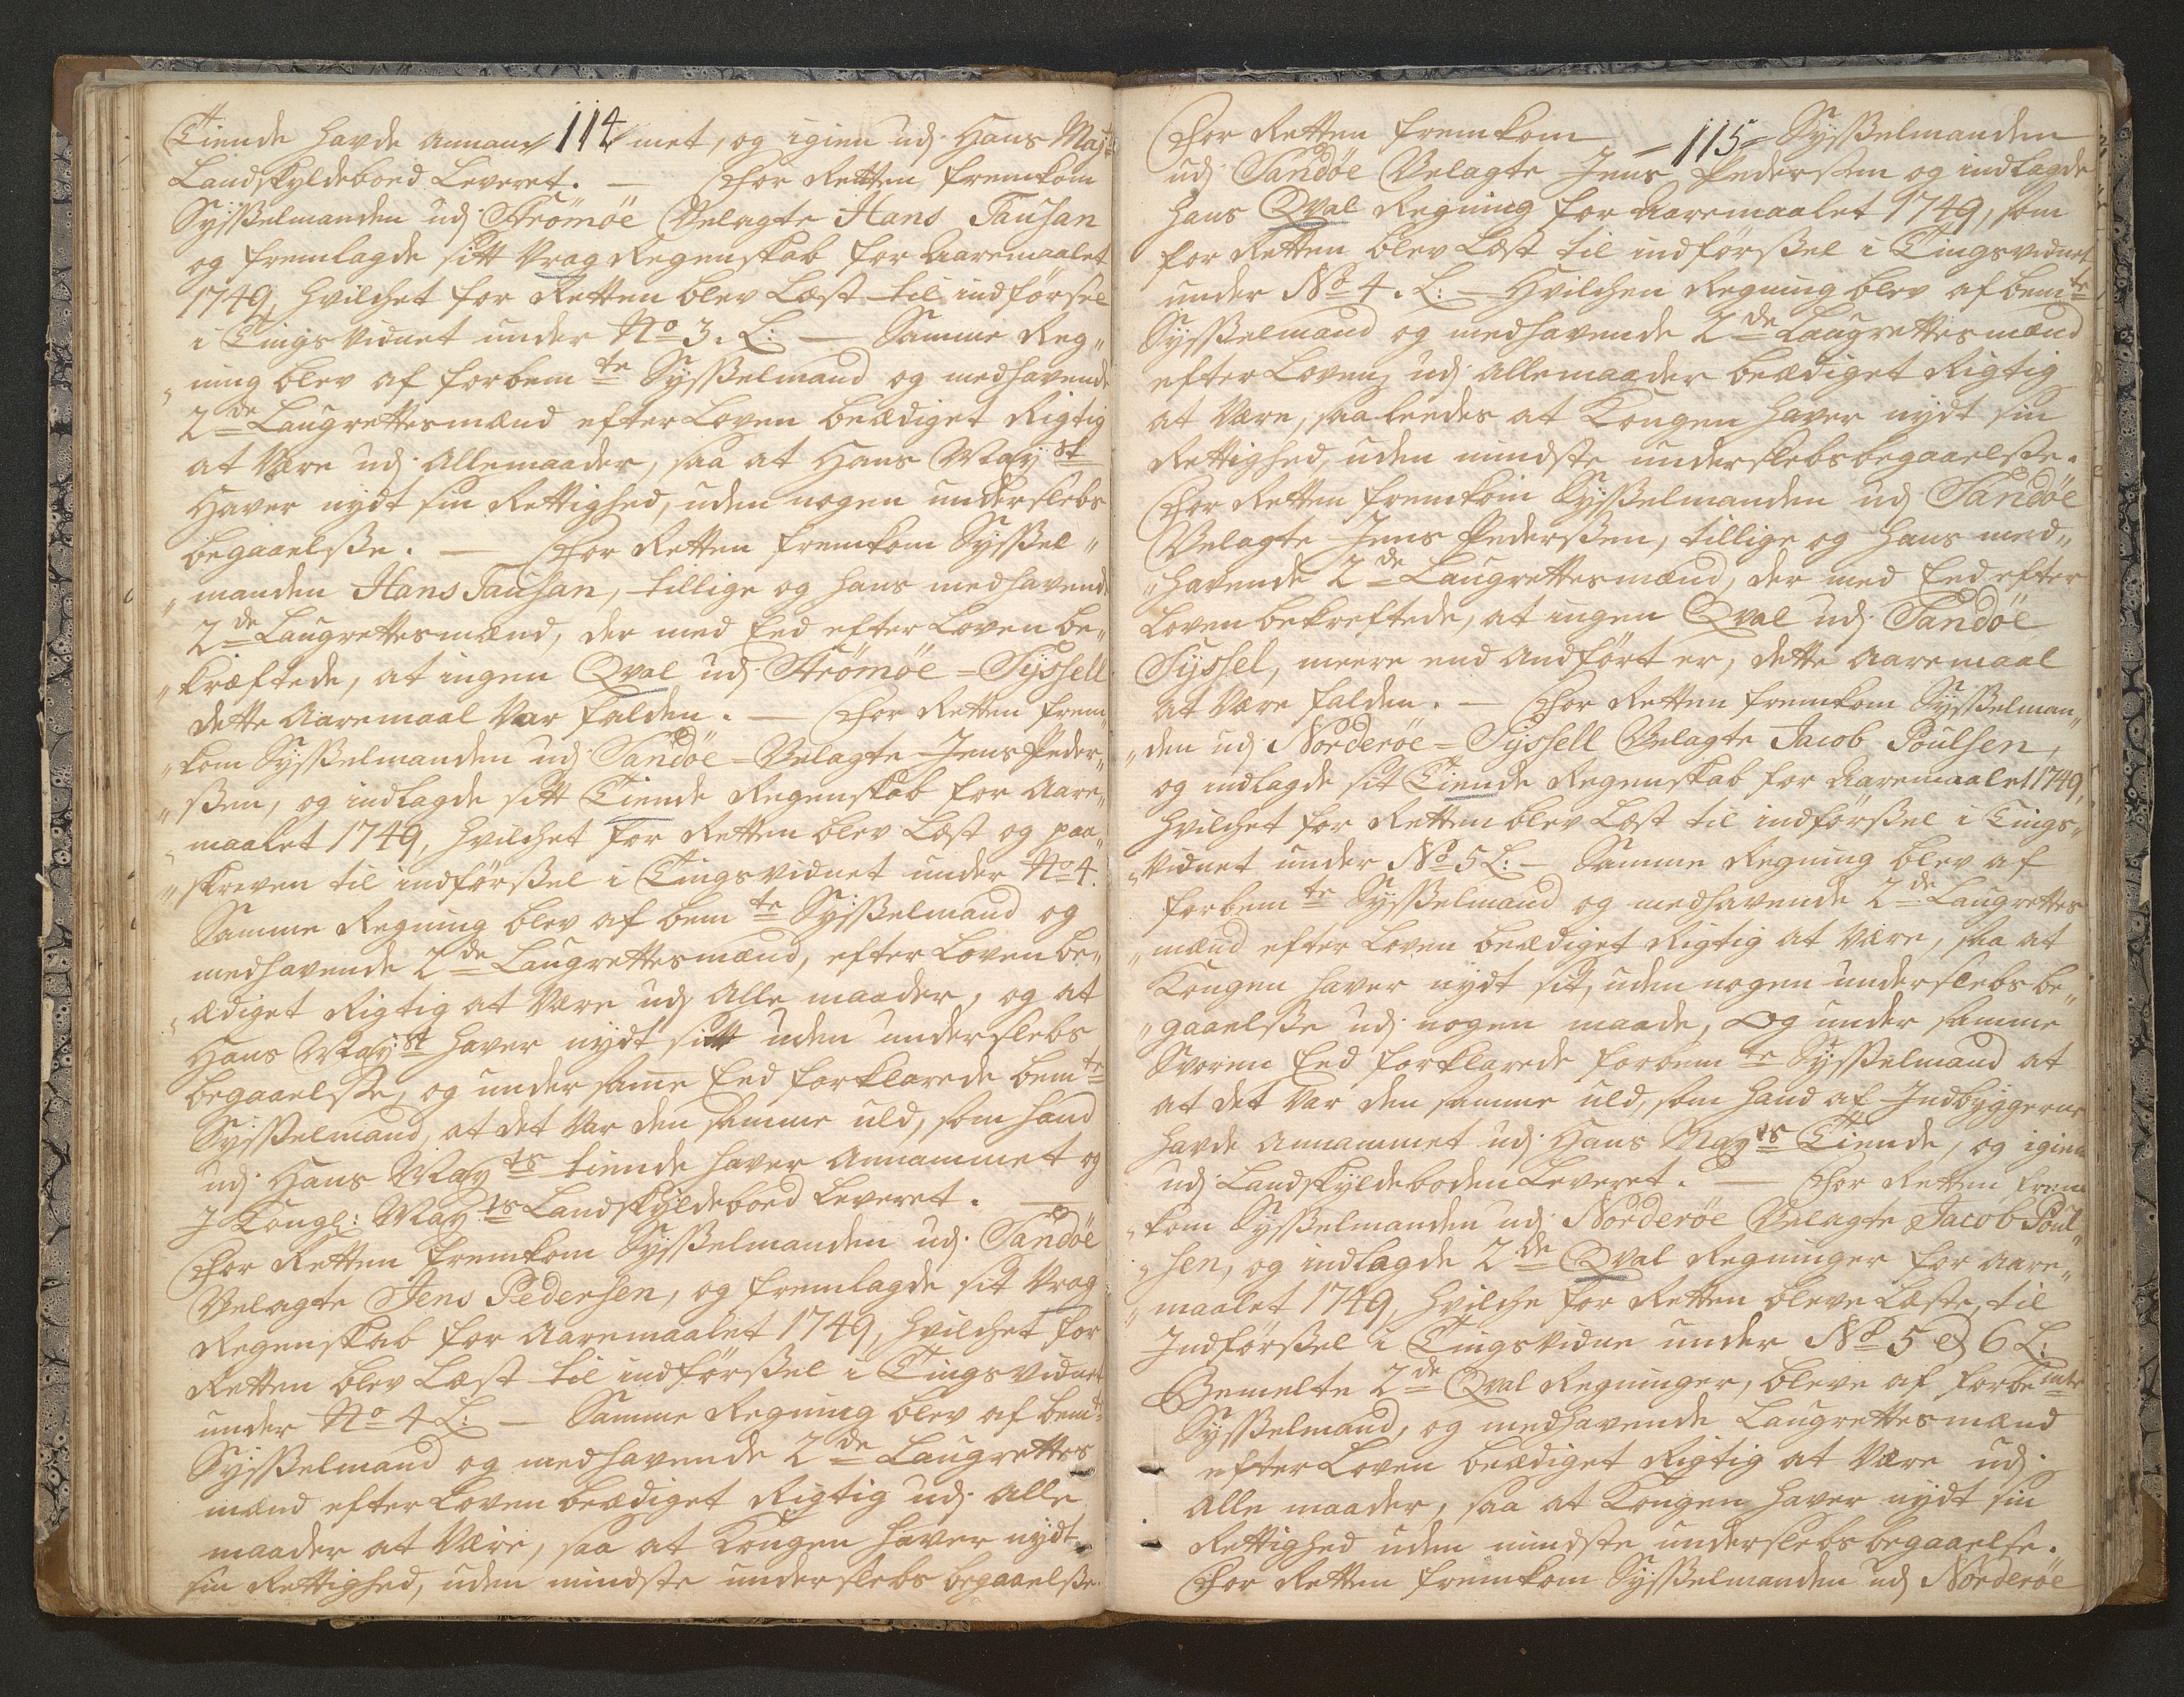 114
Tiende havde annam met, og igien udj Hans Mayts
Landskyldeboed Leveret. — For Retten fremkom
Sysselmanden udj Strömöe Velagte Hans Tausan
og fremlagde sitt Vrag Regenskab for Aaremaalet
1749, hvilchet for Retten blev Læst til indförsel
i Tingsvidnet under No 3. L: — Samme Reg„
„ning blev af forbemte Sysselmand og medhavende
2de Laugrettesmænd efter Loven beædiget Rigtig
at Være udj Allemaader, saa at Hans Mayst
Haver nydt sin Rettighed, uden nogen underslebs
begaaelsse. — For Retten fremkom Syssel„
„manden Hans Tausan, tillige og hans medhavende
2de Laugrettesmænd, der med Eed efter Loven be„
„kræftede, at ingen Qval udj Strömöe=Syssell
dette Aaremaal Var falden. — For Retten frem„
„kom Sysselmanden udj Sandöe=Velagte Jens Peder„
„ssen, og indlagde sitt Tiende Regenskab for Aare„
„maalet 1749, hvilchet for Retten blev Læst og paa„
„skreven til indförssel i Tingsvidnet under No 4.
Samme Regning blev af bemte Sysselmand og
medhavende 2de Laugrettesmænd, efter Loven be„
„ædiget Rigtig at Være udj Alle maader, og at
Hans Mayst haver nydt sitt uden underslebs
begaaelsse, og under same Eed forklarede bemte
Sysselmand, at det Var den samme uld, som hand
udj Hans Mayts tiende haver Annammet og
J Kongl: Mayts Landskyldeboed Leveret. —
For Retten fremkom Sysselmanden udj Sandöe
Velagte Jens Pedersen, og fremlagde sit Vrag
Regenskab for Aaremaalet 1749, hvilchet for
Retten blev Læst til indförssel i Tingsvidnet
under No 4 L: — Samme Regning blev af bemte
Sysselmand og medhavende 2de Laugrettes
mænd efter Loven beædiget Rigtig udj Alle
maader at Være, saa at Kongen haver nydt
sin Rettighed, uden mindste underslebs begaaelsse.
For Retten fremkom =115= Sysselmanden
udj Sandöe Velagte Jens Pedersen og indlagde
hans Qval Regning for Aaremaalet 1749, som
for Retten blev Læst til indförssel i Tingsvidnet
under No 4. L: — Hvilchen Regning blev af bemte
Sysselmand og medhavende 2de Laugrettesmænd
efter Loven udj allemaader beædiget Rigtig
at Være, saaleedes at Kongen haver nydt sin
Rettighed, uden mindste underslebsbegaaelsse.
For Retten fremkom Sysselmanden udj Sandöe
Velagte Jens Pederssen, tillige og hans med„
„havende 2de Laugrettesmænd, der med Eed efter
Loven bekreftede, at ingen Qval udj Sandöe
Syssel, meere end Andfört er, dette Aaremaal
at Være falden. — For Retten fremkom Sysselman„
„den udj Norderöe=Syssell Velagte Jacob Poulsen,
og indlagde sit Tiende Regenskab for Aaremaalet 1749,
hvilchet for Retten blev Læst til indförssel i Tings„
„vidnet under No 5 L: — Samme Regning blev af
forbemte Sysselmand og medhavende 2de Laugrettes
„mænd efter Loven beædiget Rigtig at Være, saa at
Kongen haver nydt sit, uden nogen underslebs be„
„gaaelsse udj nogen maade, Og under samme
Svoren Eed forklarede forbemte Sysselmand at
at det Var den samme uld, som hand af Indbyggerne
havde Annammet udj Hans Mayts Tiende, og igien
udj Landskyldeboden Leveret. — For Retten frem
„kom Sysselmanden udj Norderöe Velagte Jacob Poul„
„sen, og indlagde 2de Qval Regninger for Aare„
„maalet 1749, hvilche for Retten bleve Læste, til
Indförssel i Tingsvidne under No 5 & 6 L:
Bemelte 2de Qval Regninger, bleve af forbemte
Sysselmand, og medhavende Laugrettesmænd
efter Loven beædiget Rigtig at Være udj
Alle maader, saa at Kongen haver nydt sin
Rettighed uden mindste underslebs begaaelse.
For Retten fremkom Sysselmanden udj Norderöe